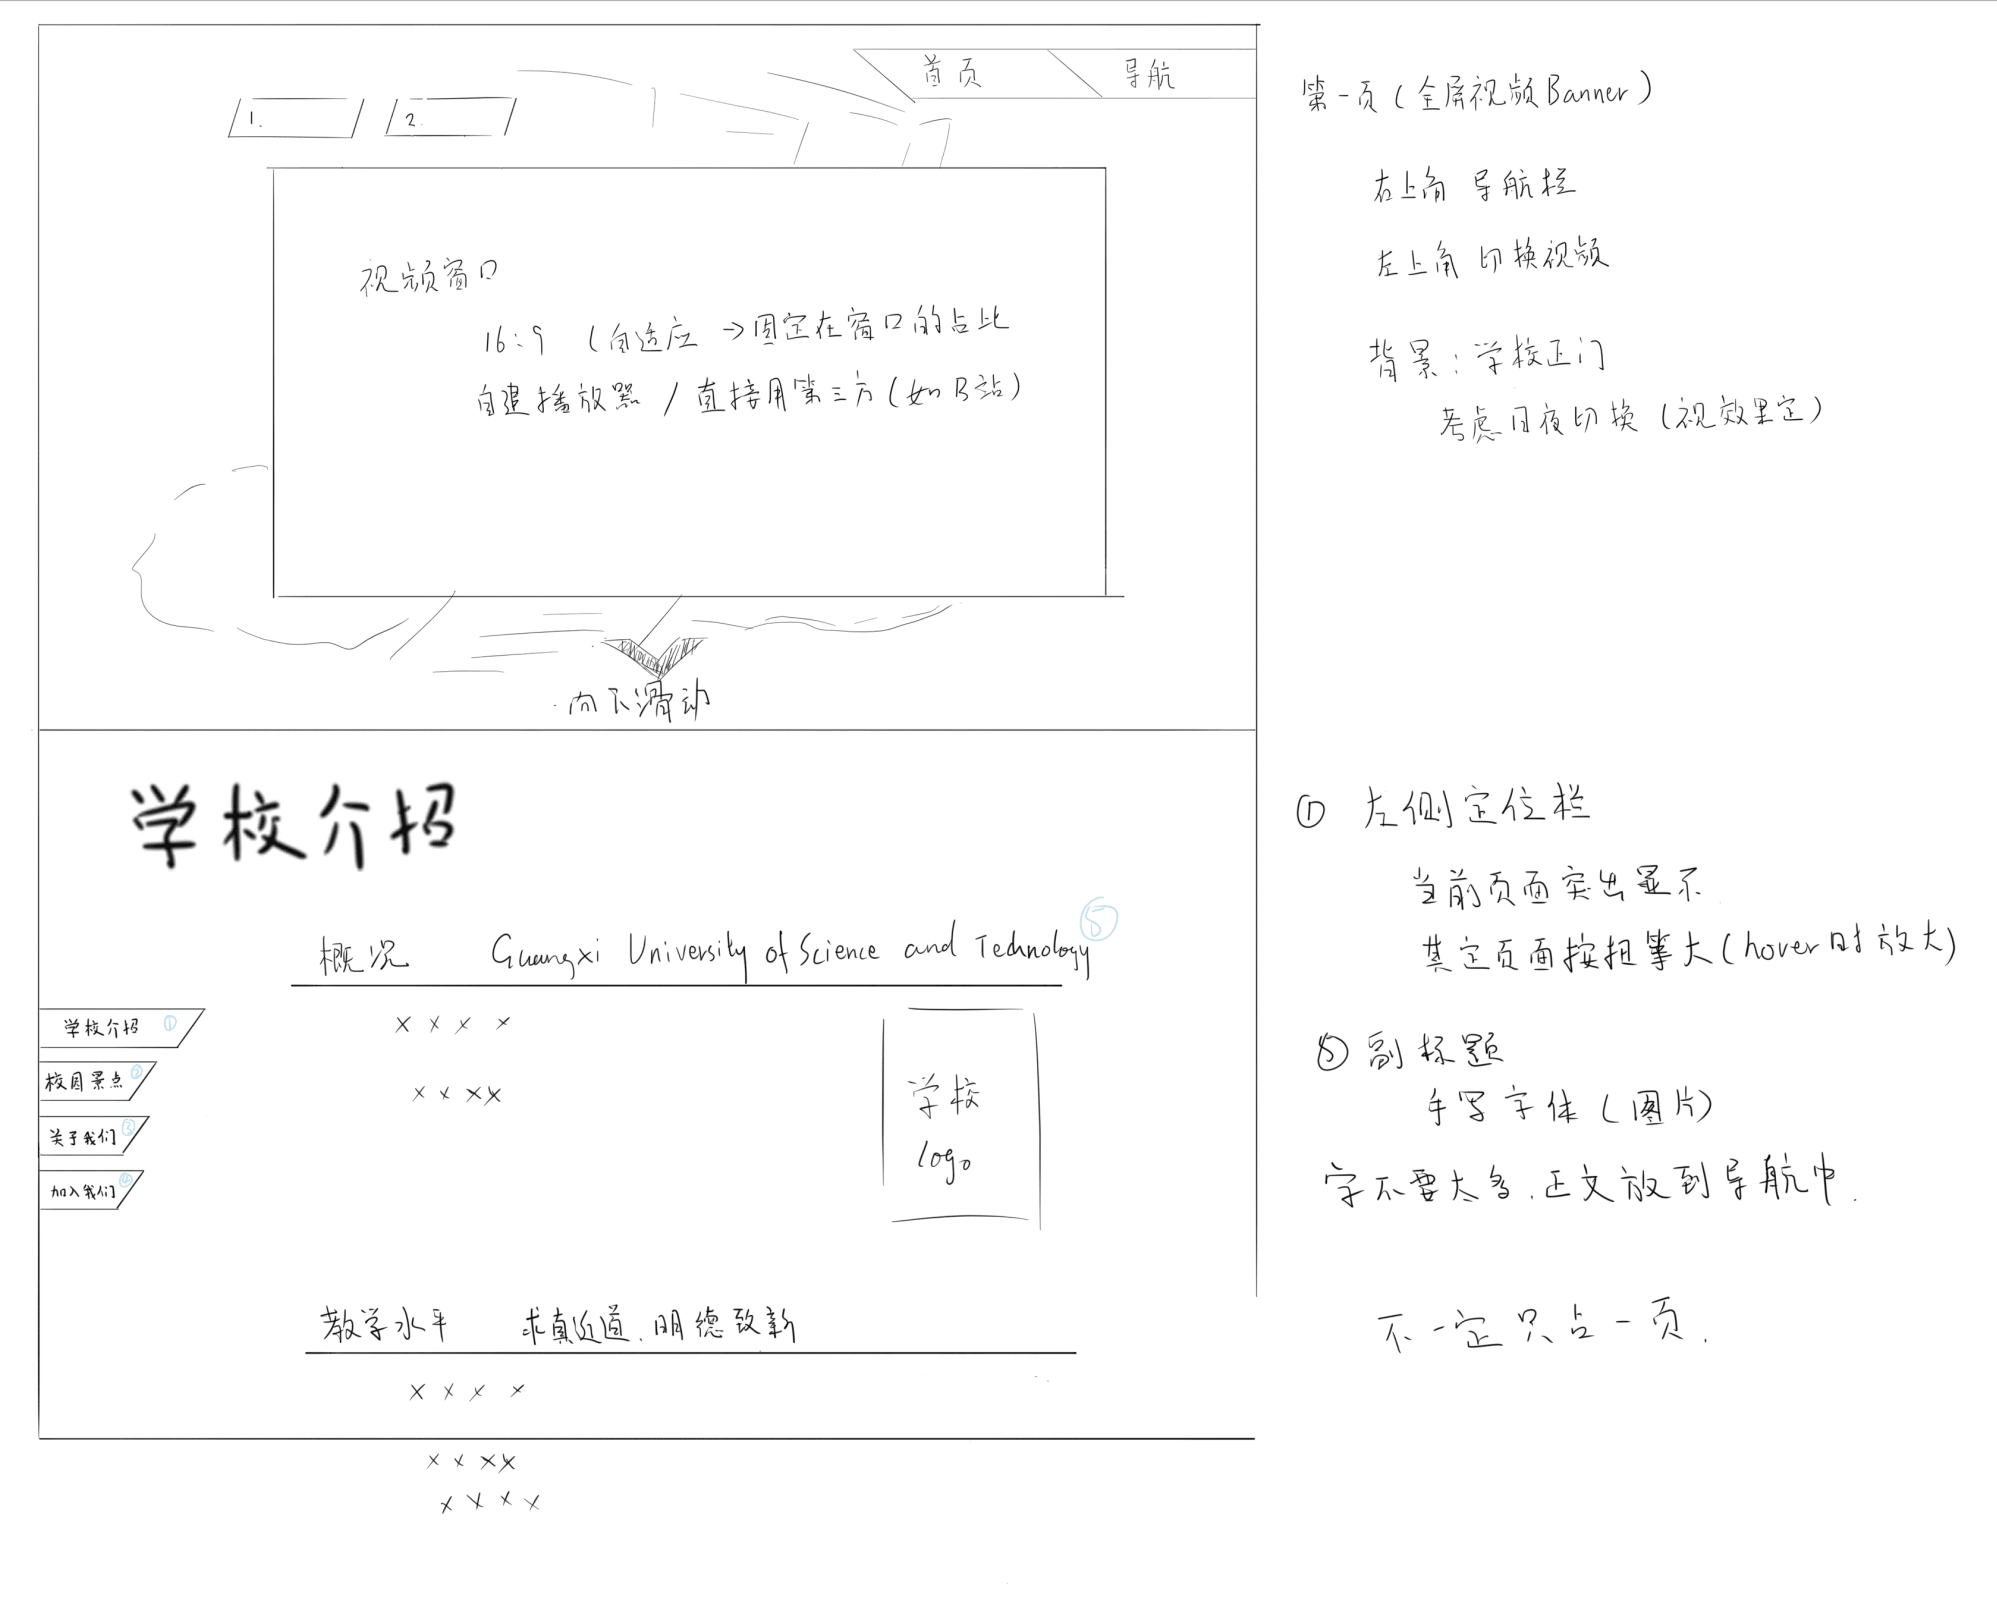 首页 导航
1. 2.
视频窗口
16:9 (自适应 →固定在窗口的占比
自建播放器 / 直接用第三方(如B站)
向下滑动
第一页(全屏视频Banner)
右上角 导航栏
左上角 切换视频
背景:学校正门
考虑日夜切换(视效果定)
学校介绍
概况 Guangxi University of Science and Technology ⑤
学校介绍 ①
校园景点 ②
关于我们 ③
加入我们 ④
x x x x
x x x x
学校
logo
教学水平 求真近道、明德致新
x x x x
x x x x
x x x x
① 左侧定位栏
当前页面突出显示
其它页面按扭等大(hover时放大)
⑤ 副标题
手写字体(图片)
字不要太多、正文放到导航中.
不一定只占一页.